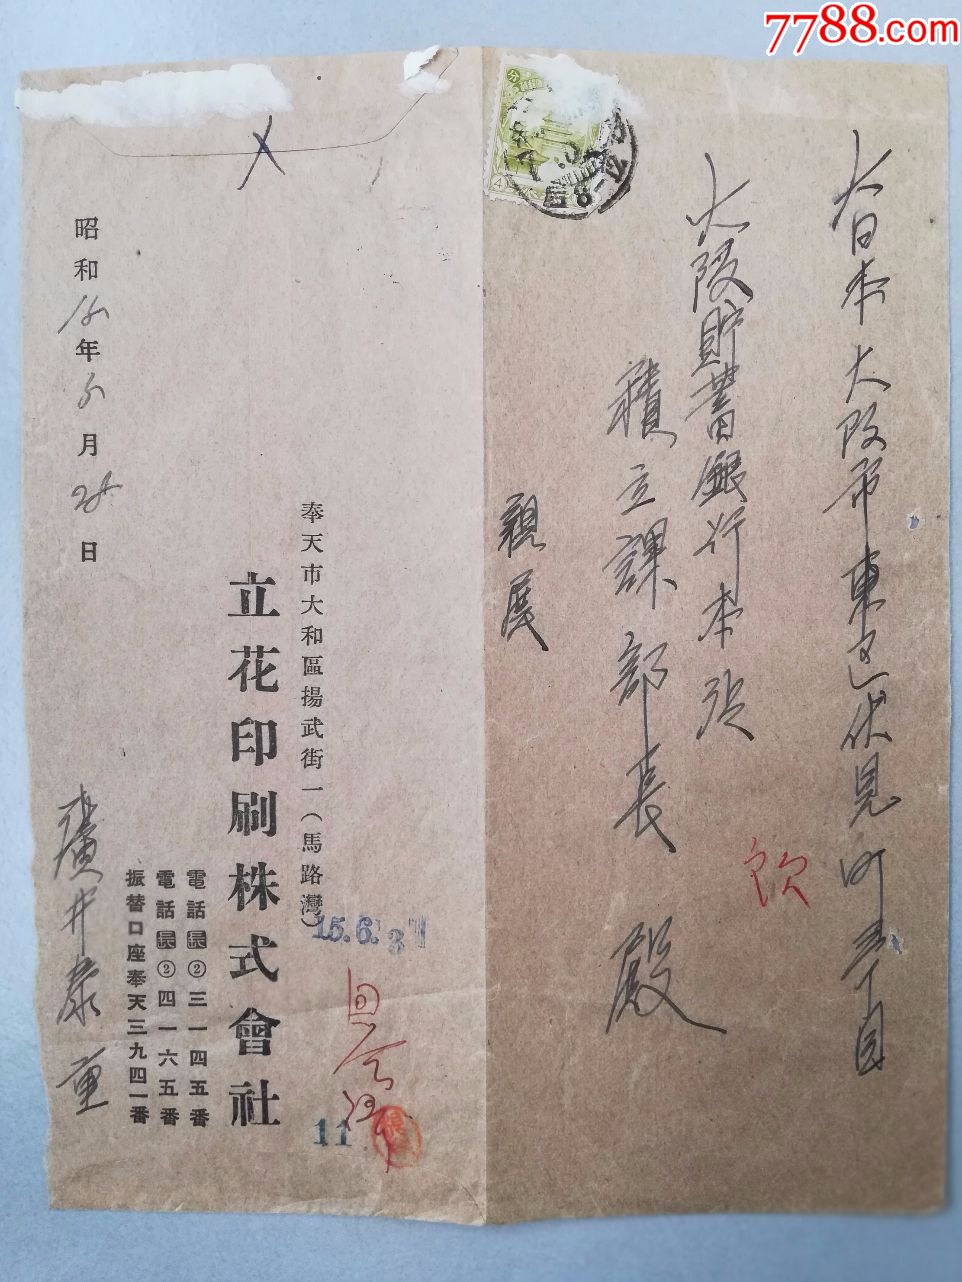 7788.com
大日本大阪市東区伏見町
大阪貯蓄銀行本店
積立課部長 殿
親展
欠
4
分
15.6.3
11
奉天市大和區揚武街一(馬路灣)
立花印刷株式會社
電話長②三一四五番
電話長②四一六五番
振替口座奉天三九四一番
昭和15年5月28日
廣井泰重